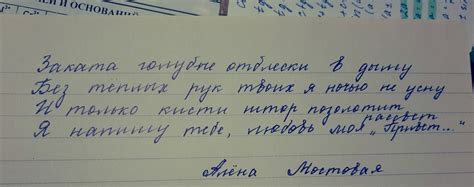 И ОСНОВАНИ
Заката голубые отблески в дыму
Без тёплых рук твоих я ночью не усну
И только кисти штор позолотит
рассвет
Я напишу тебе, любовь моя „Привет..."
Алёна Мостовая